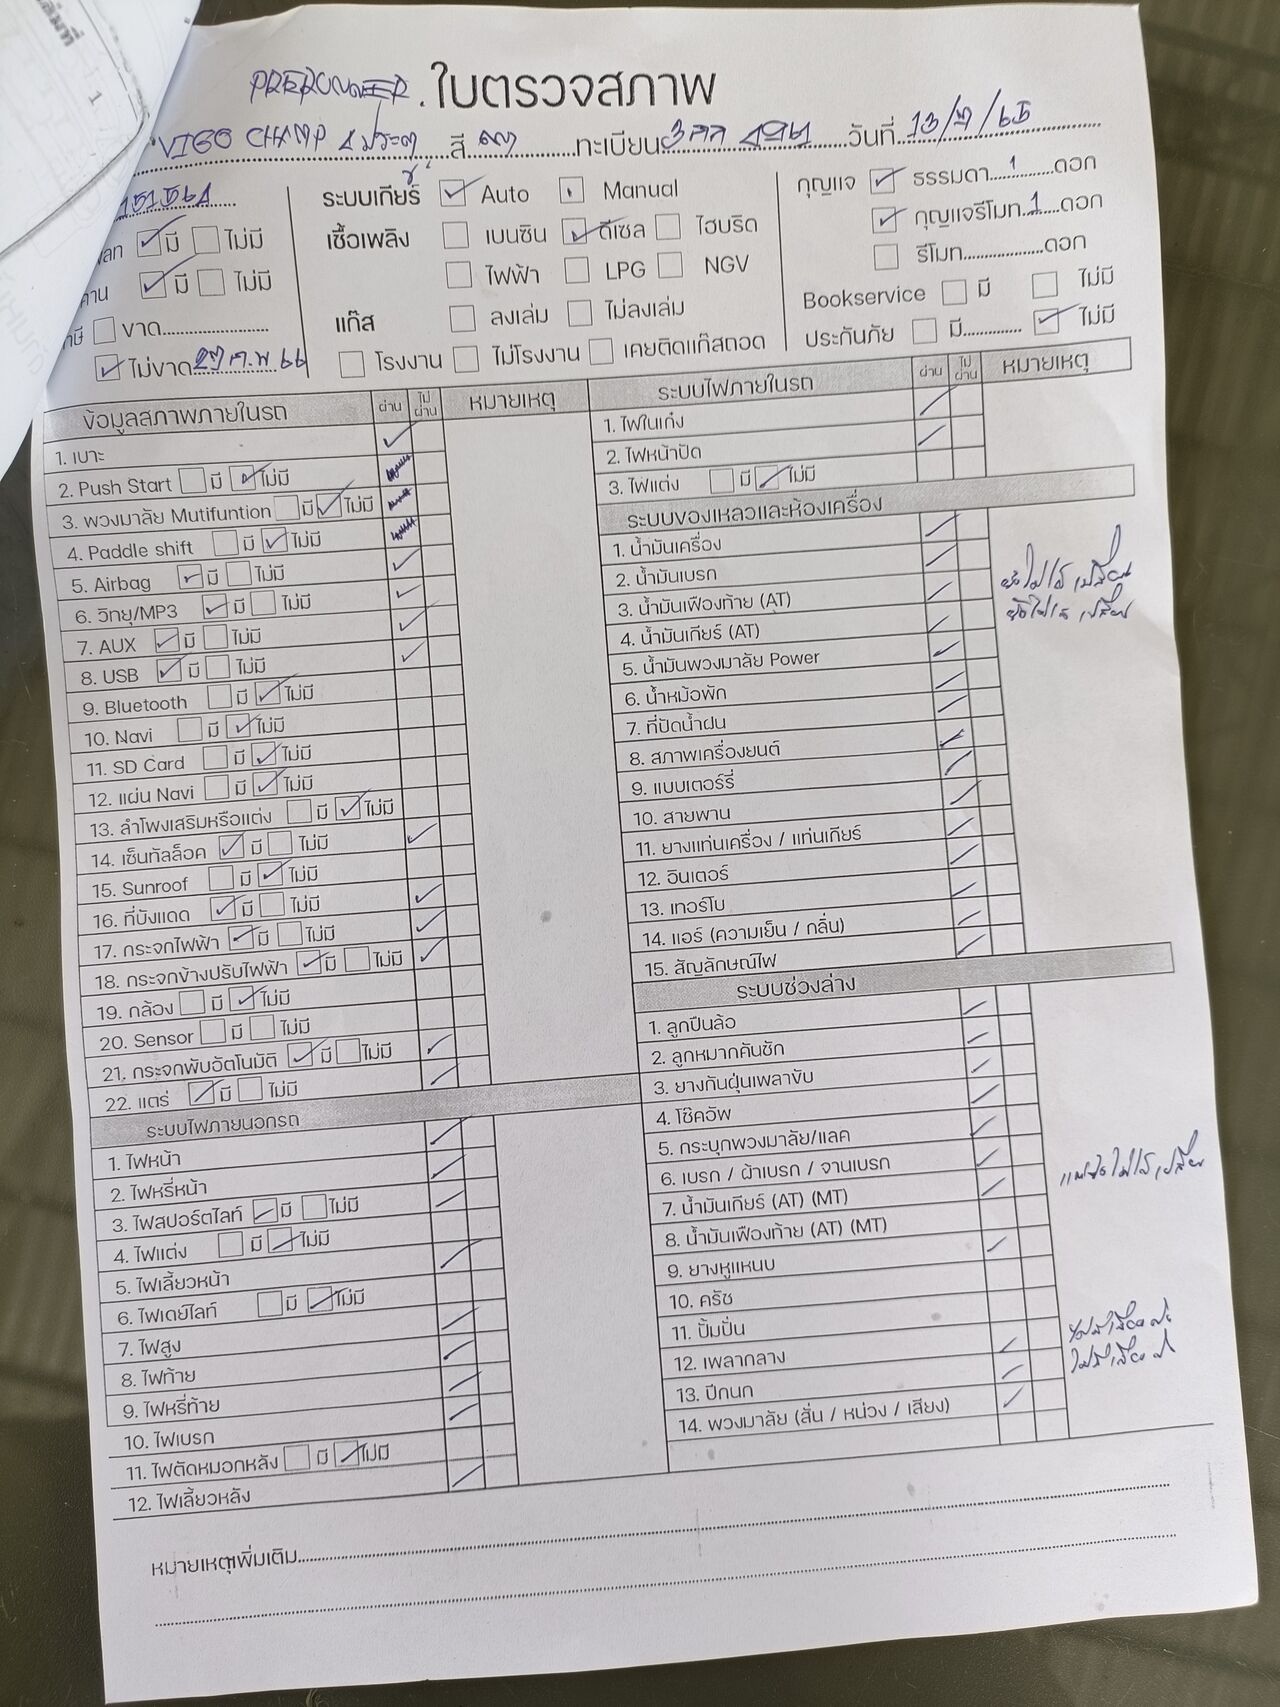 PRERUNNER. ใบตรวจสภาพ
VIGO CHAMP 4 ประตู สี เทา ทะเบียน วันที่ 13/ /65
ระบบเกียร์ Auto Manual
เชื้อเพลิง เบนซิน ดีเซล ไฮบริด
ไฟฟ้า LPG NGV
แก๊ส ลงเล่ม ไม่ลงเล่ม
โรงงาน ไม่โรงงาน เคยติดแก๊สถอด
กุญแจ ธรรมดา 1 ดอก
กุญแจรีโมท 1 ดอก
รีโมท ดอก
Bookservice มี ไม่มี
ประกันภัย มี ไม่มี
มี ไม่มี
มี ไม่มี
ขาด
ไม่ขาด ก.พ 66
ข้อมูลสภาพภายในรถ ผ่าน ไม่ผ่าน หมายเหตุ
1. เบาะ
2. Push Start มี ไม่มี
3. พวงมาลัย Mutifuntion มี ไม่มี
4. Paddle shift มี ไม่มี
5. Airbag มี ไม่มี
6. วิทยุ/MP3 มี ไม่มี
7. AUX มี ไม่มี
8. USB มี ไม่มี
9. Bluetooth มี ไม่มี
10. Navi มี ไม่มี
11. SD Card มี ไม่มี
12. แผ่น Navi มี ไม่มี
13. ลำโพงเสริมหรือแต่ง มี ไม่มี
14. เซ็นทัลล็อค มี ไม่มี
15. Sunroof มี ไม่มี
16. ที่บังแดด มี ไม่มี
17. กระจกไฟฟ้า มี ไม่มี
18. กระจกข้างปรับไฟฟ้า มี ไม่มี
19. กล้อง มี ไม่มี
20. Sensor มี ไม่มี
21. กระจกพับอัตโนมัติ มี ไม่มี
22. แตร่ มี ไม่มี
ระบบไฟภายนอกรถ
1. ไฟหน้า
2. ไฟหรี่หน้า
3. ไฟสปอร์ตไลท์ มี ไม่มี
4. ไฟแต่ง มี ไม่มี
5. ไฟเลี้ยวหน้า
6. ไฟเดย์ไลท์ มี ไม่มี
7. ไฟสูง
8. ไฟท้าย
9. ไฟหรี่ท้าย
10. ไฟเบรก
11. ไฟตัดหมอกหลัง มี ไม่มี
12. ไฟเลี้ยวหลัง
ระบบไฟภายในรถ ผ่าน ไม่ผ่าน หมายเหตุ
1. ไฟในเก๋ง
2. ไฟหน้าปัด
3. ไฟแต่ง มี ไม่มี
ระบบของเหลวและห้องเครื่อง
1. น้ำมันเครื่อง
2. น้ำมันเบรก
3. น้ำมันเฟืองท้าย (AT)
4. น้ำมันเกียร์ (AT)
5. น้ำมันพวงมาลัย Power
6. น้ำหม้อพัก
7. ที่ปัดน้ำฝน
8. สภาพเครื่องยนต์
9. แบบเตอร์รี่
10. สายพาน
11. ยางแท่นเครื่อง / แท่นเกียร์
12. อินเตอร์
13. เทอร์โบ
14. แอร์ (ความเย็น / กลิ่น)
15. สัญลักษณ์ไฟ
ยังไม่ได้เปลี่ยน
ยังไม่ได้เปลี่ยน
ระบบช่วงล่าง
1. ลูกปืนล้อ
2. ลูกหมากคันชัก
3. ยางกันฝุ่นเพลาขับ
4. โช๊คอัพ
5. กระบุกพวงมาลัย/แลค
6. เบรก / ผ้าเบรก / จานเบรก
7. น้ำมันเกียร์ (AT) (MT)
8. น้ำมันเฟืองท้าย (AT) (MT)
9. ยางหูแหนบ
10. ครัช
11. ปั้มปั่น
12. เพลากลาง
13. ปีกนก
14. พวงมาลัย (สั่น / หน่วง / เสียง)
หมายเหตุเพิ่มเติม